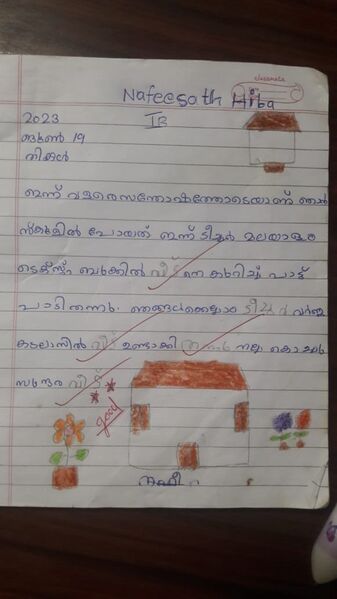 classmate
Nafeesath Hiba
2023 IB
ജൂൺ 19
തിങ്കൾ
ഇന്ന് വളരെസന്തോഷത്തോടെയാണ് ഞാൻ
സ്കൂളിൽ പോയത് ഇന്ന് ടീച്ചർ മലയാളം
ടെക്സ്റ്റ് ബുക്കിൽ വീട് നെ കുറിച്ച് പാട്ട്
പാടി തന്നു. ഞങ്ങൾക്കെല്ലാം ടീച്ചർ വർണ്ണ
കടലാസിൽ വീട് ഉണ്ടാക്കി തന്നു നല്ല കൊച്ചു
സുന്ദര വീട്
good